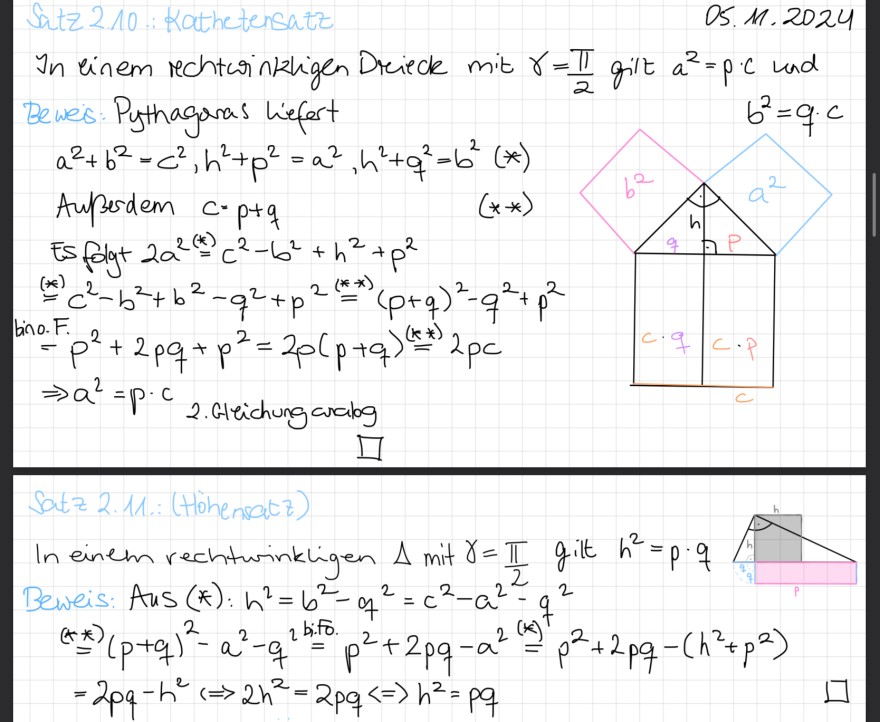 Satz 2.10.: Kathetensatz
05.11.2024
In einem rechtwinkligen Dreieck mit γ = π/2 gilt a² = p·c und
b² = q·c
Beweis: Pythagoras liefert
a² + b² = c², h² + p² = a², h² + q² = b² (*)
Außerdem c = p+q (**)
Es folgt 2a² (*)= c² - b² + h² + p²
(*)= c² - b² + b² - q² + p² (**)= (p+q)² - q² + p²
bino. F. = p² + 2pq + p² = 2p(p+q) (**)= 2pc
⇒ a² = p·c
2. Gleichung analog
□
b²
a²
h
q
p
c·q
c·p
c
Satz 2.11.: (Höhensatz)
In einem rechtwinkligen Δ mit γ = π/2 gilt h² = p·q
Beweis: Aus (*): h² = b² - q² = c² - a² - q²
(**)= (p+q)² - a² - q² bi.Fo.= p² + 2pq - a² (*)= p² + 2pq - (h² + p²)
= 2pq - h² <=> 2h² = 2pq <=> h² = pq
□
h
h
q
q
p